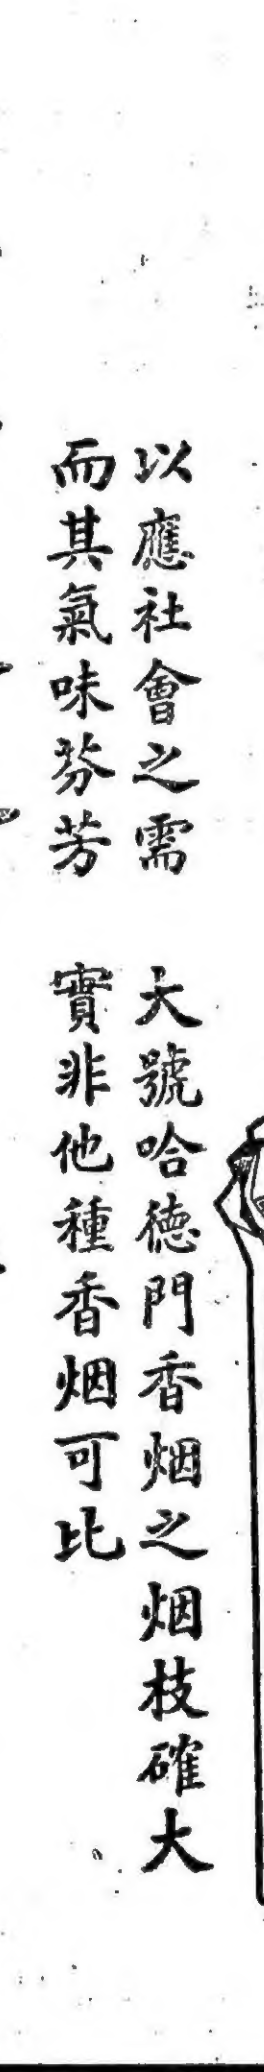 以應社會之需　大號哈德門香烟之烟枝確大
而其氣味芬芳　實非他種香烟可比